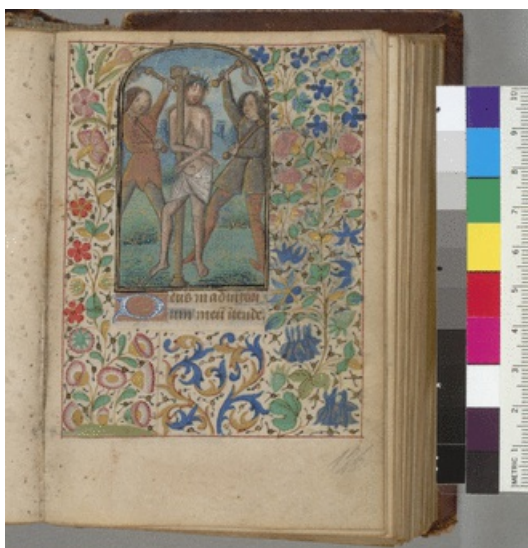 Deus in adiutori
um meū ītende
METRIC 1
2
3
4
5
6
7
8
9
10